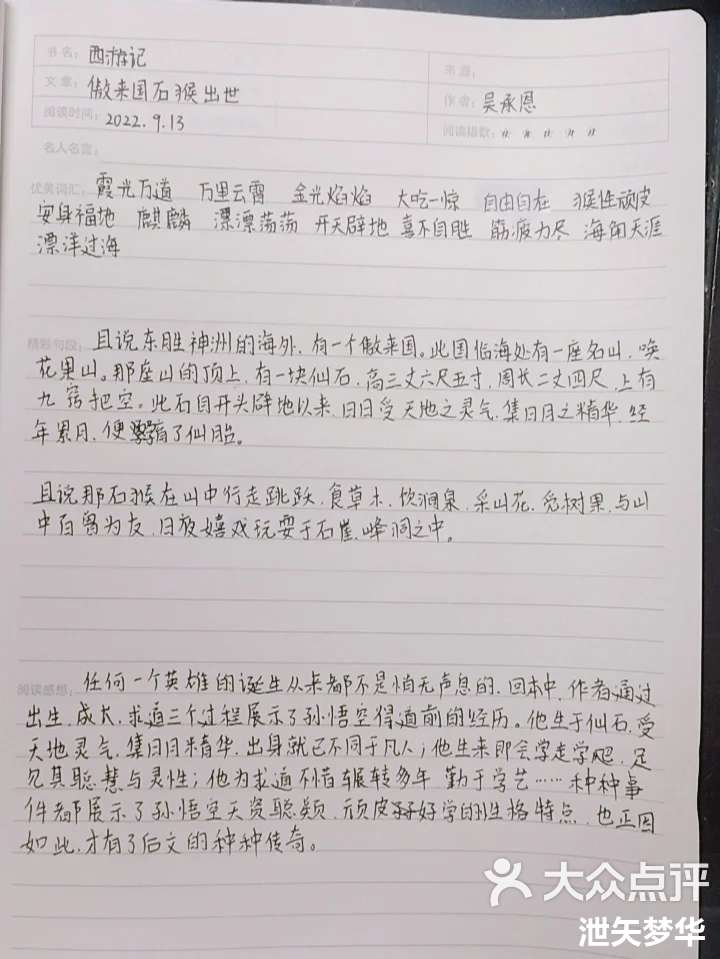 书名: 西游记
书源:
文章: 傲来国石猴出世
作者: 吴承恩
阅读时间: 2022.9.13
阅读指数: ☆ ☆ ☆ ☆ ☆
名人名言:
优美词汇: 霞光万道 万里云霄 金光焰焰 大吃一惊 自由自在 猴性顽皮
安身福地 麒麟 漂漂荡荡 开天辟地 喜不自胜 筋疲力尽 海阔天涯
漂洋过海
精彩句段: 且说东胜神洲的海外,有一个傲来国。此国临海处有一座名山,唤
花果山。那座山的顶上,有一块仙石,高三丈六尺五寸,周长二丈四尺,上有
九窍把空。此石自开头辟地以来,日日受天地之灵气,集日月之精华,经
年累月,便孕育了仙胎。
且说那石猴在山中行走跳跃,食草木,饮涧泉,采山花,觅树果,与山
中百兽为友,日夜嬉戏玩耍于石崖,峰洞之中。
阅读感想: 任何一个英雄的诞生从来都不是悄无声息的,回本中,作者通过
出生,成长,求道三个过程展示了孙悟空得道前的经历。他生于仙石,受
天地灵气,集日月精华,出身就已不同于凡人;他生来即会学走学爬,足
见其聪慧与灵性;他为求道不惜辗转多年 勤于学艺……种种事
件都展示了孙悟空天资聪颖,顽皮好学的性格特点,也正因
如此,才有了后文的种种传奇。
大众点评
泄矢梦华